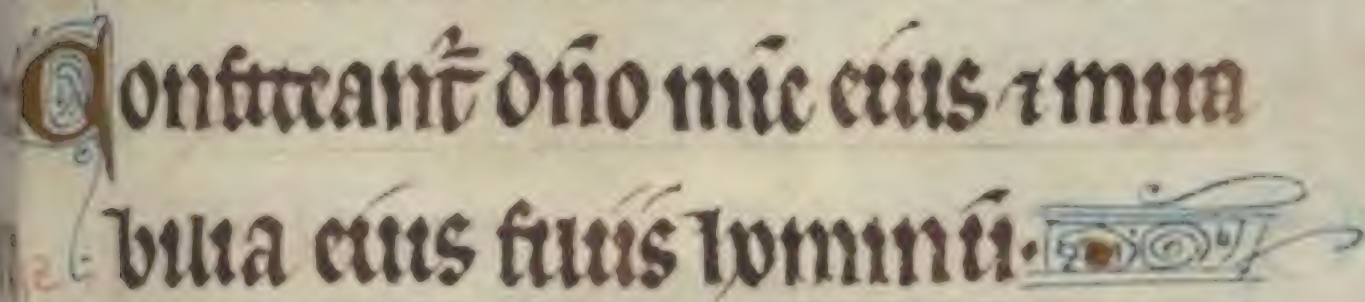 Confiteant᷑ dn̄o mīe eius ⁊ mira
bilia eius filiis hominū.